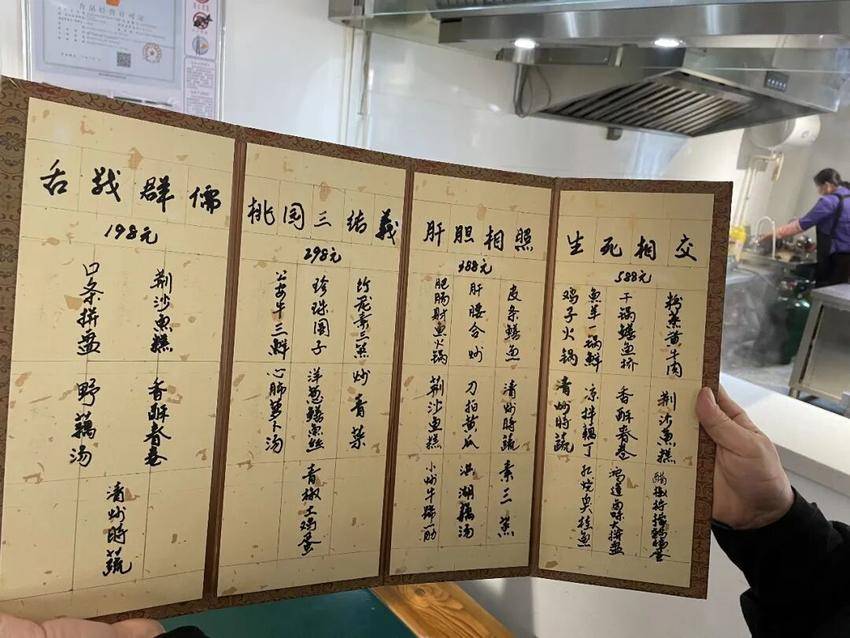 食品经营许可证
舌战群儒
198元
荆沙鱼糕
香酥春卷
口条拼盘
野藕汤
清炒時蔬
桃园三结義
298元
素三蒸
炒青菜
珍珠圆子
洋葱鳝鱼丝
青椒土鸡蛋
公安牛三鲜
心肺萝卜汤
肝胆相照
388元
皮条鳝鱼
清炒時蔬
素三蒸
肝腰合炒
刀拍黄瓜
洪湖藕汤
肥肠财鱼火锅
荆沙鱼糕
小炒牛蹄筋
生死相交
588元
粉蒸黄牛肉
荆沙鱼糕
干锅鳝鱼桥
香酥春卷
鸿运卤味大拼盘
鱼羊一锅鲜
凉拌藕丁
红烧臭桂鱼
鸡子火锅
清炒時蔬